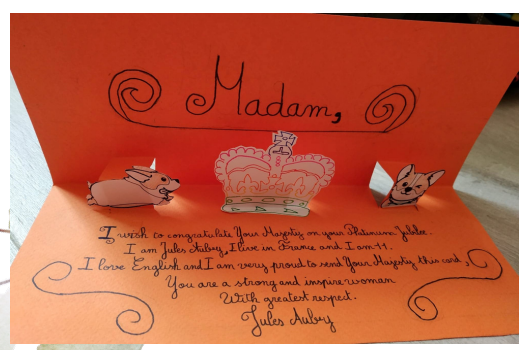 Madam,
I wish to congratulate Your Majesty on your Platinum Jubile.
I am Jules Aubry, I live in France and I am 11.
I love English and I am very proud to send Your Majesty this card,
You are a strong and inspire woman
With greatest respect.
Jules Aubry